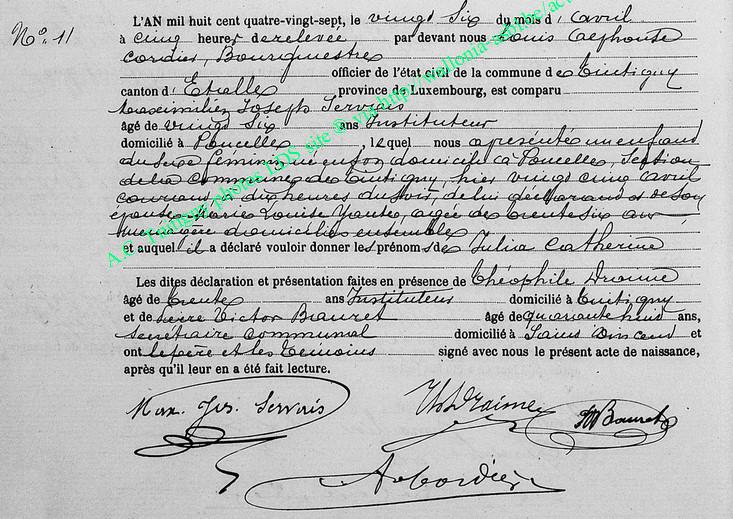 N°. 11
L'AN mil huit cent quatre-vingt-sept, le vingt six du mois d'avril
à cinq heures de relevée par devant nous Louis Alphonse
Cordier, Bourgmestre
officier de l'état civil de la commune de Tintigny
canton d'Etalle province de Luxembourg, est comparu
Maximilien Joseph Servais
âgé de vingt six ans Instituteur
domicilié à Poncelle, lequel nous a présenté un enfant
du sexe féminin, né en son domicile à Poncelle, Section
de la commune de Tintigny, hier vingt cinq avril
courant à dix heures du soir, de lui déclarant et de son
épouse Marie Louise âgée de trente six ans
ménagère domiciliés ensemble
et auquel il a déclaré vouloir donner les prénoms de Julia Catherine
Les dites déclaration et présentation faites en présence de Théophile
âgé de trente ans Instituteur domicilié à Tintigny
et de Pierre Victor Bauret âgé de quarante huit ans,
secrétaire communal domicilié à Saint Vincent et
ont le père et les témoins signé avec nous le présent acte de naissance,
après qu'il leur en a été fait lecture.
Max. Jos. Servais
Bauret
Cordier
A.C. Tintigny photos LDS site © via http://wallonia-asbl.be/ac